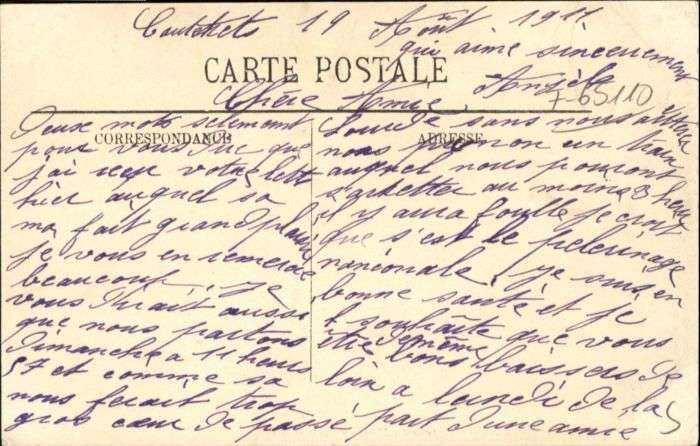 Cauterets 19 Août 1911
CARTE POSTALE
7-65110
CORRESPONDANCE
ADRESSE
Chère Amie,
Deux mots seulement
pour vous dire que
j'ai reçu votre lettre
hier auquel sa
ma fait grand plaisir
je vous en remercie
beaucoup, je
vous dirait aussi
que nous partons
Dimanche a 11 heurs
57 et comme sa
nous ferait trop
gros cœur de passé
Lourde sans nous arreter
nous prenon un train
auquel nous pouront
s'arhetter au moins 3 heurs
il y aura foulle je croit
que s'est le pelerinage
nancionale. je suis en
bonne santé et je
souhaite que vous
ête de même
bons baisers de
loin a lundi de la
part d'une amie
qui aime sincerement
Angèle